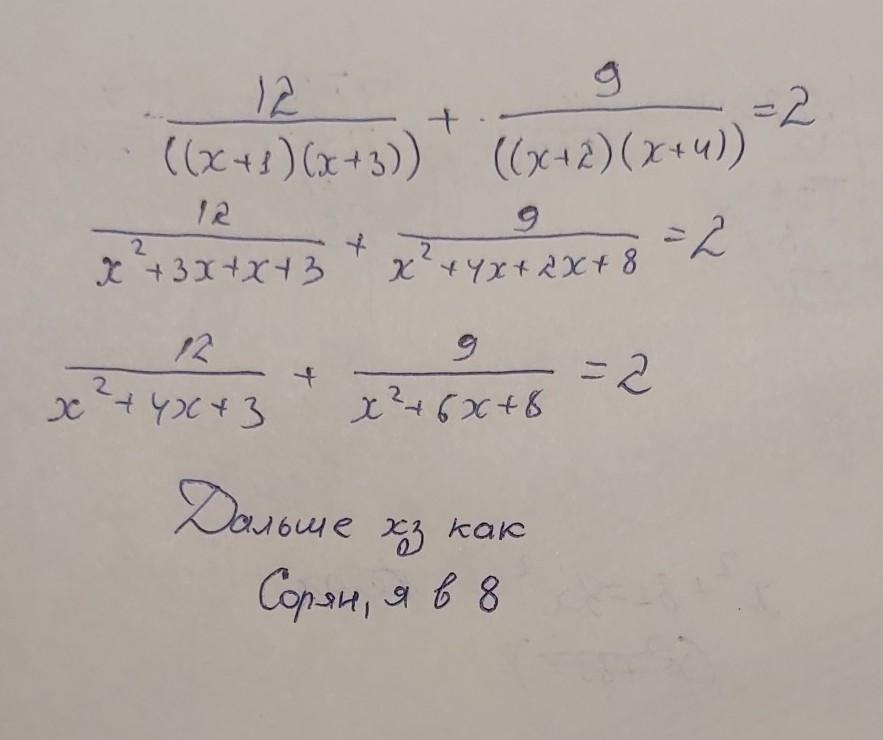 12/((x+1)(x+3)) + 9/((x+2)(x+4)) = 2
12/(x²+3x+x+3) + 9/(x²+4x+2x+8) = 2
12/(x²+4x+3) + 9/(x²+6x+8) = 2
Дальше хз как
Сорян, я в 8